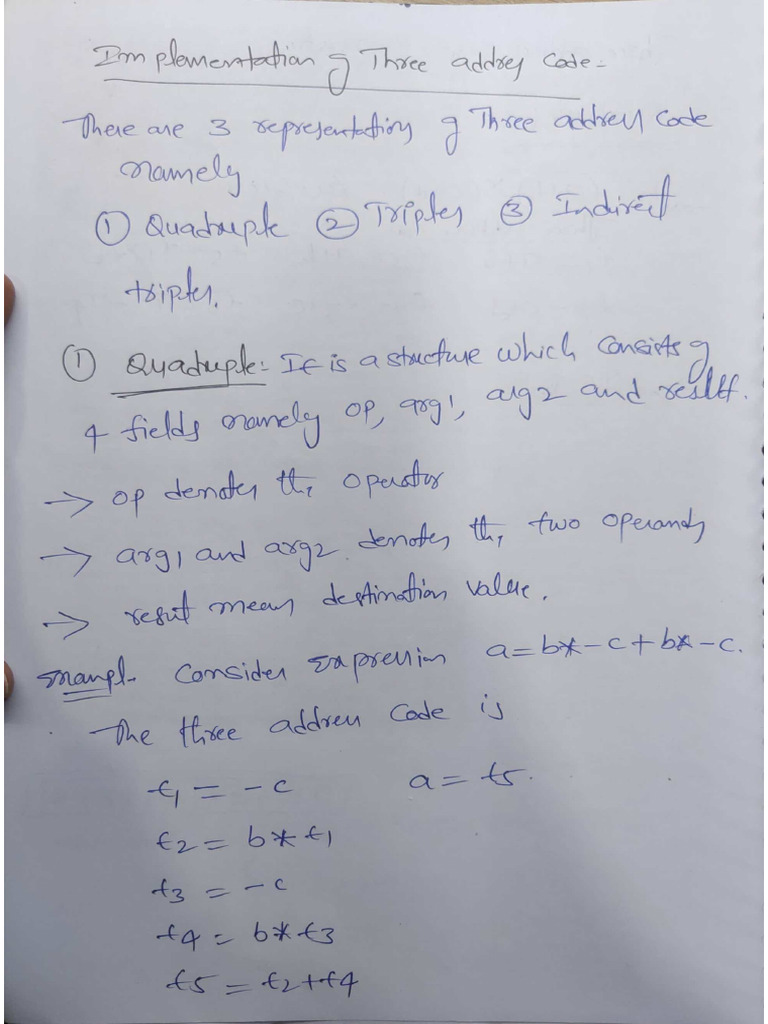 Implementation of Three address code:-
There are 3 representations of Three address code
namely
① Quadruple ② Triples ③ Indirect
triples.
① Quadruple: It is a structure which consists of
4 fields namely op, arg1, arg2 and result.
→ op denotes the operator
→ arg1 and arg2 denotes the two operands
→ result means destination value.
Example Consider Expression a=b*-c+b*-c.
The three address code is
t1 = -c a = t5.
t2 = b*t1
t3 = -c
t4 = b*t3
t5 = t2+t4